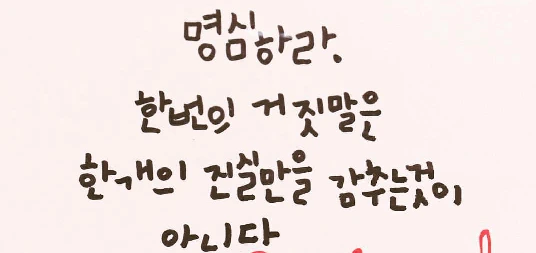 명심하라.
한번의 거짓말은
한개의 진실만을 감추는것이
아니다